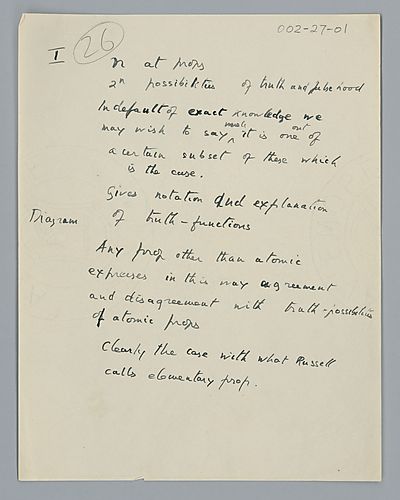 002-27-01
I
26
n at props
2ⁿ possibilities of truth and falsehood
In default of exact knowledge we
merely out
may wish to say ^ it is one of
a certain subset of these which
is the case.
Gives notation and explanation
Diagram
of truth-functions
Any prop other than atomic
expresses in this way agreement
and disagreement with truth-possibilities
of atomic props
Clearly the case with what Russell
calls elementary prop.